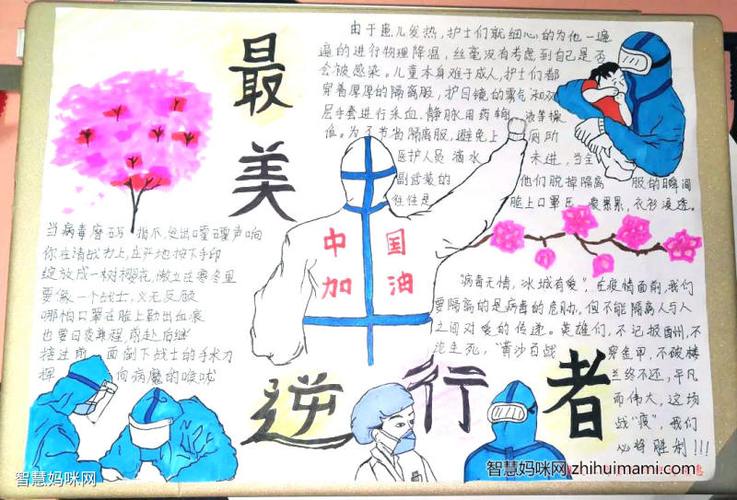 最美
逆行者
由于患儿发热，护士们就细心的为他一遍
遍的进行物理降温，丝毫没有考虑到自己是否
会被感染。儿童本身难于成人，护士们都
穿着厚厚的隔离服，护目镜的雾气和双
层手套进行采血、静脉用药
作。为了节省隔离服，避免上厕所
医护人员滴水未进，当全
副武装的他们脱掉隔离服的瞬间
往往是脸上口罩压
衣衫浸透。
中国
加油
当病毒
你在请战书上，庄严地按下手印
绽放成一树樱花，傲立在寒冬里
要做一个战士，义无反顾
哪怕口罩在脸上勒出血痕
也要日夜兼程，前赴后继
接过前面倒下战士的手术刀
挥向病魔的咽喉
"病毒无情，冰城有爱"，在疫情面前，我们
要隔离的是病毒的危胁，但不能隔离人与人
之间对爱的传递。英雄们，不记报酬，不
论生死，"黄沙百战穿金甲，不破楼
兰终不还，平凡
而伟大，这场
战"疫"，我们
必将胜利！！！
智慧妈咪网
智慧妈咪网zhihuimami.com